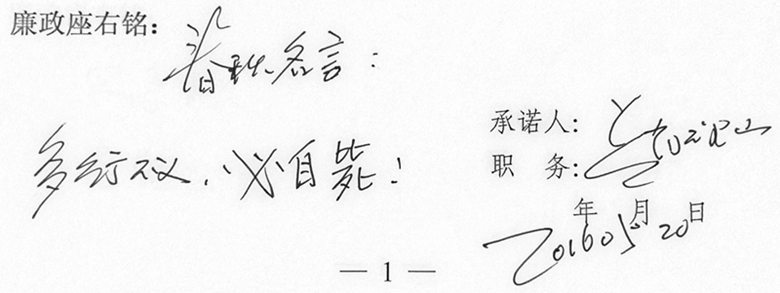 廉政座右铭：
春秋名言：
多行不义，必自毙！
承诺人：
职　务：
年　月　日
2016 05 20
— 1 —